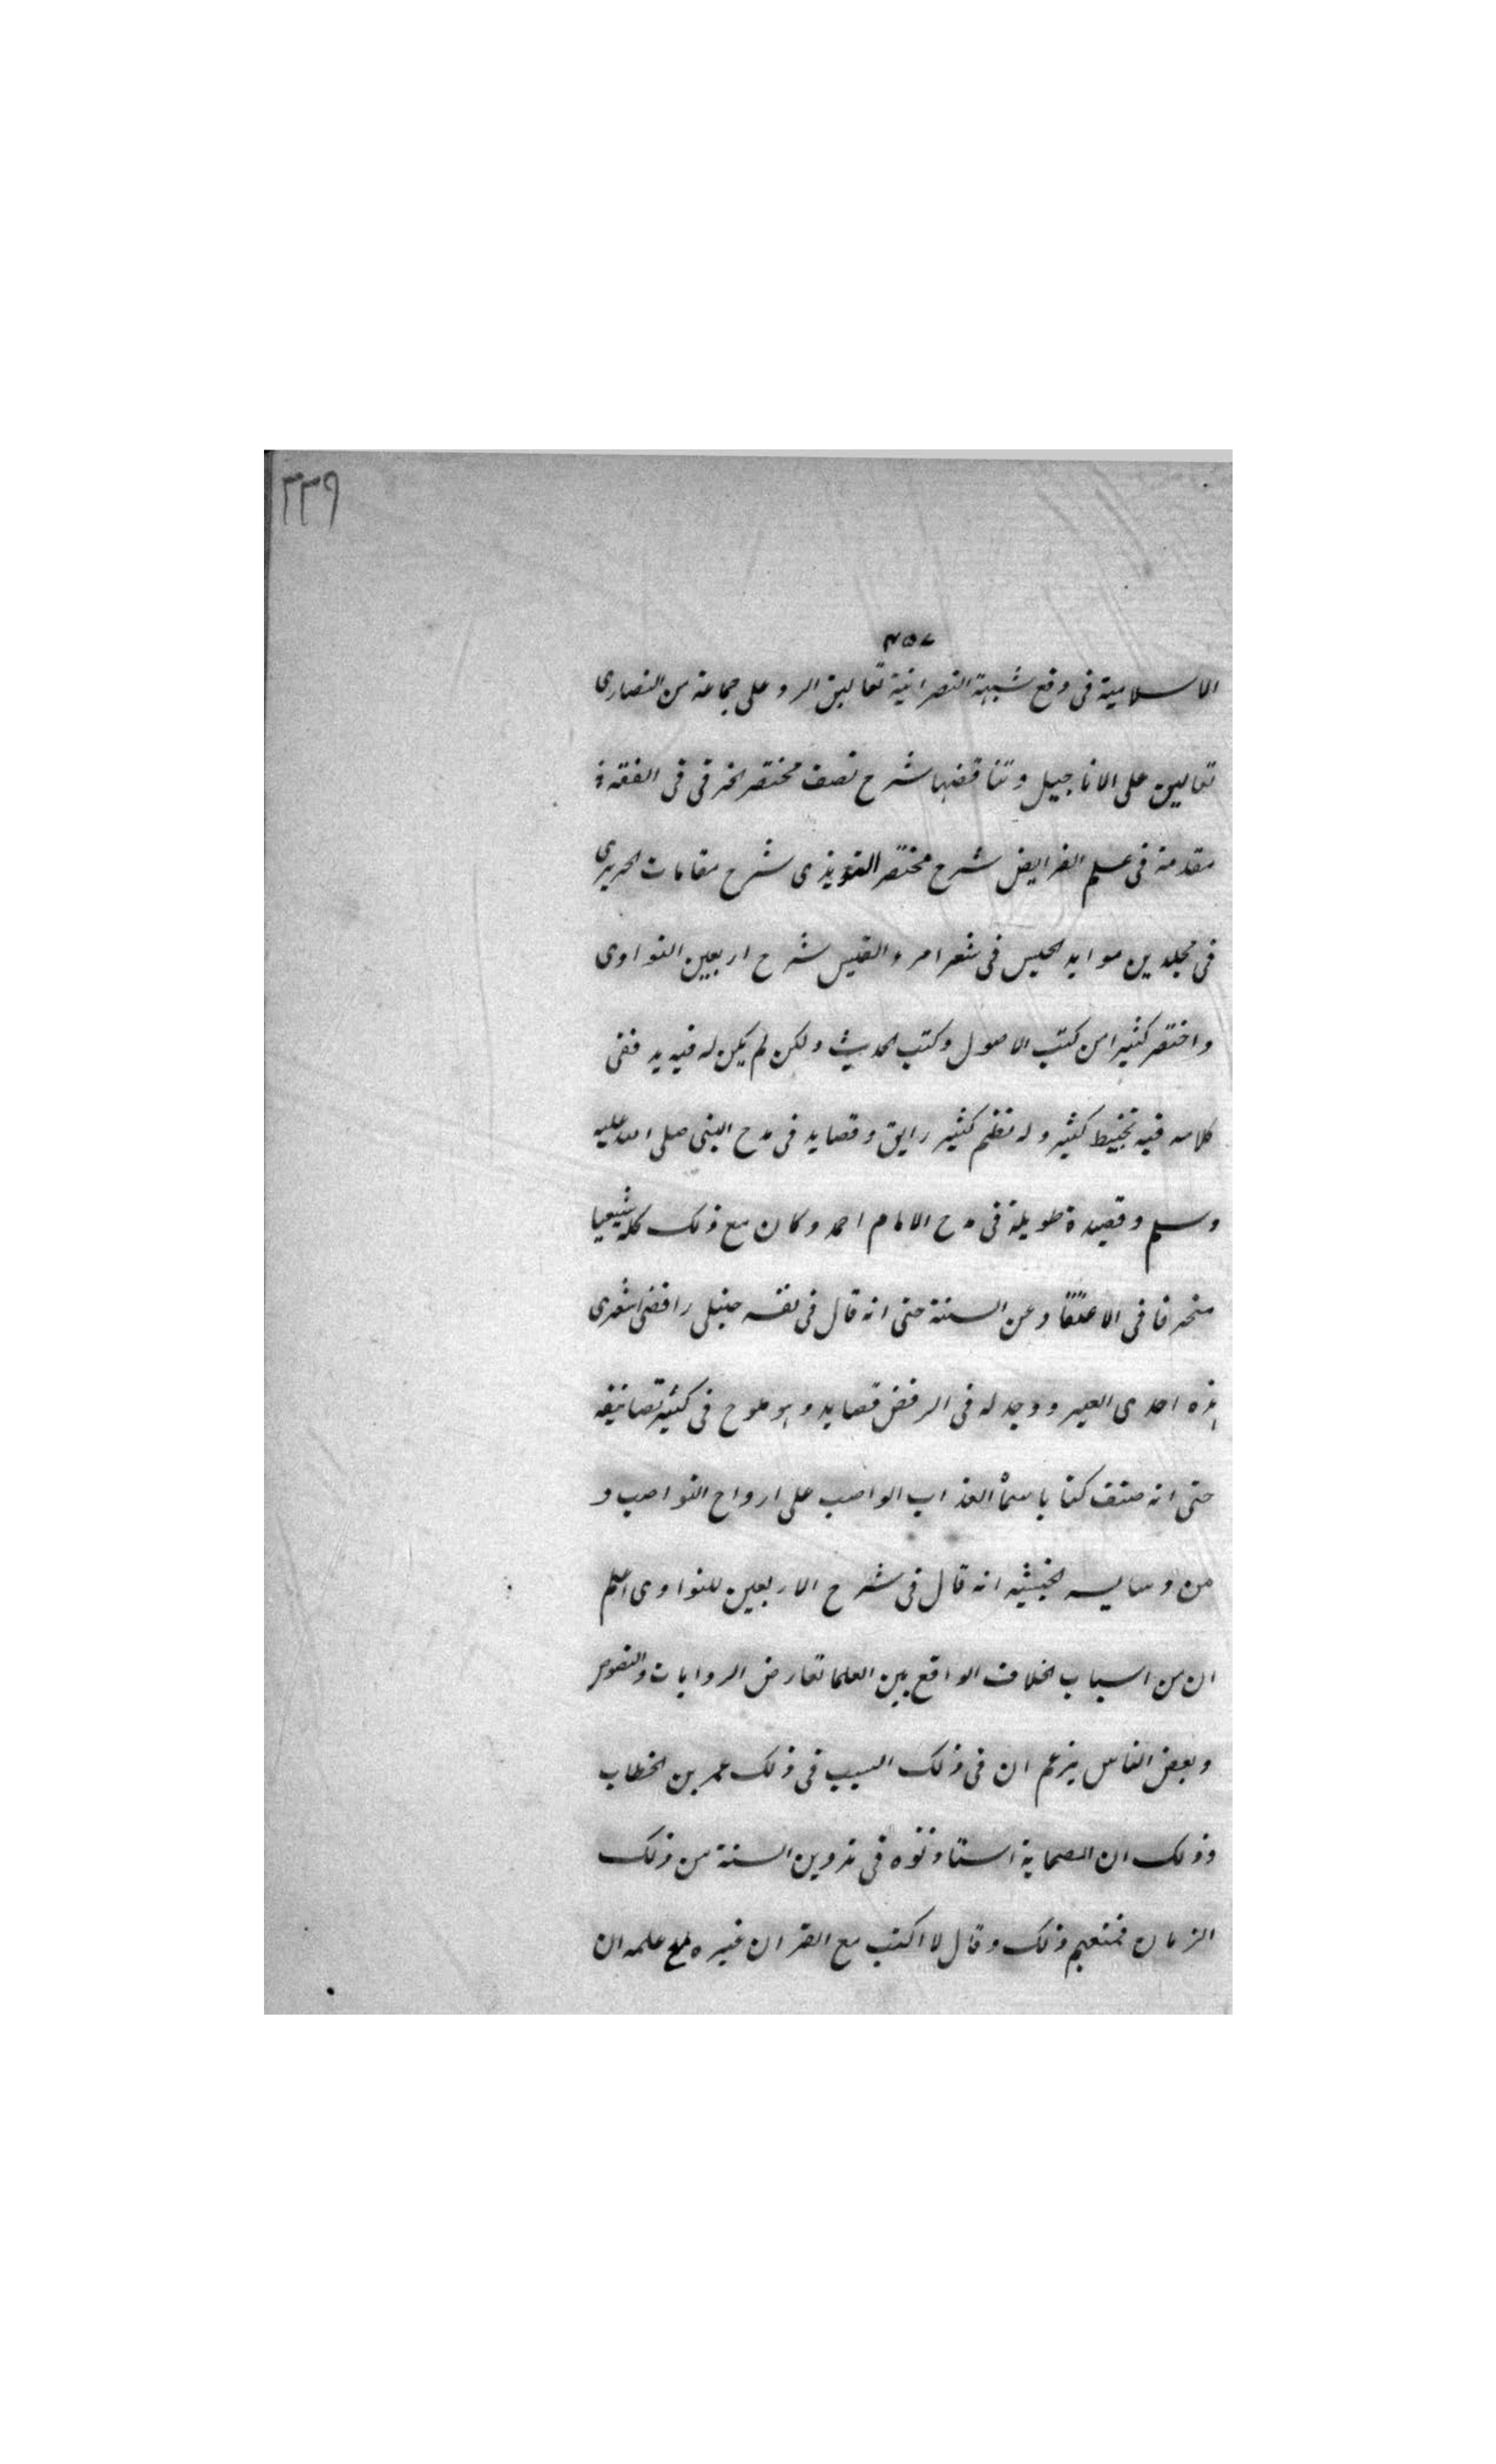 ٣٣٩
٤٥٧
الاسلامية فى دفع شبهة النصرانية تعاليق الرد على جماعة من النصارى
تعاليق على الاناجيل وتناقضها شرح نصف مختصر الخرقى فى الفقه
مقدمة فى علم الفرايض شرح مختصر التبريزى شرح مقامات الحريرى
فى مجلدين موايد الحيس فى شعر امرء القيس شرح اربعين النواوى
واختصر كثيرا من كتب الاصول وكتب الحديث ولكن لم يكن له فيه يد ففى
كلامه فيه تخبيط كثير وله نظم كثير رايق وقصايد فى مدح النبى صلى الله عليه
وسلم وقصيدة طويلة فى مدح الامام احمد وكان مع ذلك كله شيعيا
منحرفا فى الاعتقاد عن السنة حتى انه قال فى نفسه حنبلى رافضى اشعرى
هذه احدى العبر ووجد له فى الرفض قصايد وهو يلوح فى كثير تصانيفه
حتى انه صنف كتابا سماه العذاب الواصب على ارواح النواصب و
من دسايسه الخبيثه انه قال فى شرح الاربعين للنواوى اعلم
ان من اسباب الخلاف الواقع بين العلما تعارض الروايات والنصوص
وبعض الناس يزعم ان فى ذلك السبب فى ذلك عمر بن الخطاب
وذلك ان الصحابة استاذنوه فى تدوين السنة من ذلك
الزمان فمنعهم ذلك وقال لا اكتب مع القران غيره مع علمه ان